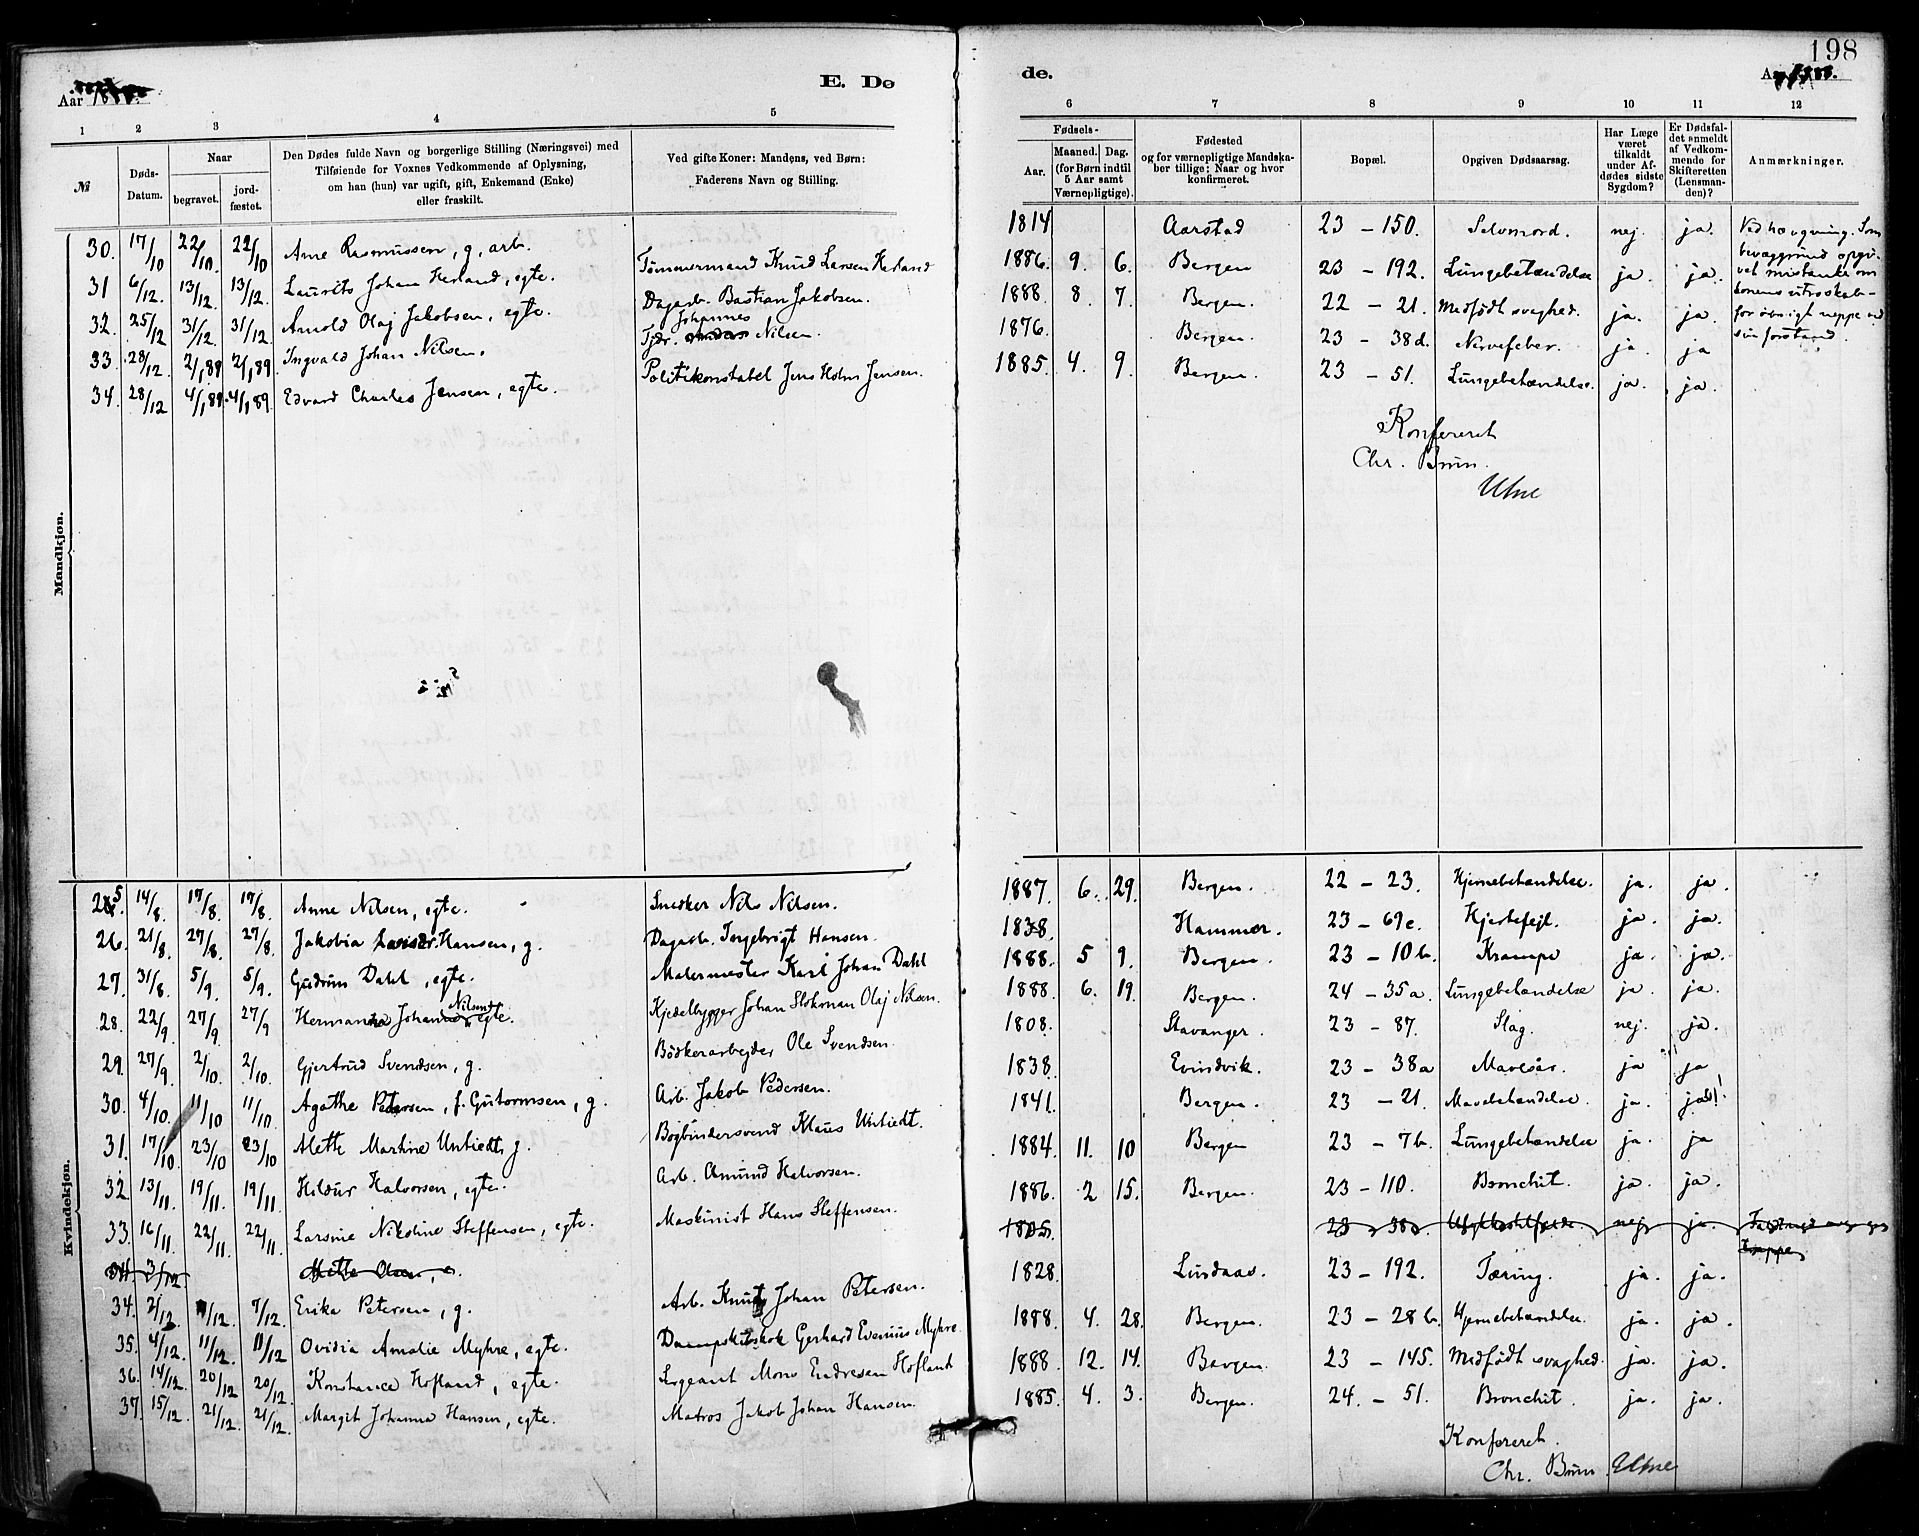 198
Aar 1888.
E. Dø
de.
Aar 1888.
1 2 3 4 5 6 7 8 9 10 11 12
№
Døds-Datum.
Naar
begravet.
jord-fæstet.
Den Dødes fulde Navn og borgerlige Stilling (Næringsvei) med
Tilføiende for Voxnes Vedkommende af Oplysning,
om han (hun) var ugift, gift, Enkemand (Enke)
eller fraskilt.
Ved gifte Koner: Mandens, ved Børn:
Faderens Navn og Stilling.
Fødsels-
Aar.
Maaned. Dag.
(for Børn indtil
5 Aar samt
Værnepligtige).
Fødested
og for værnepligtige Mandska-
ber tillige: Naar og hvor
konfirmeret.
Bopæl.
Opgiven Dødsaarsag.
Har Læge
været
tilkaldt
under Af-
dødes sidste
Sygdom?
Er Dødsfal-
det anmeldt
af Vedkom-
mende for
Skifteretten
(Lensman-
den)?
Anmærkninger.
Mandkjøn.
30. 17/10 22/10 22/10 Arne Rasmussen, g, arb. 1814 Aarstad 23 – 150. Selvmord. nej. ja. Ved hængning. Som
bevæggrund opgi-
vet mistanke om
konens utroskab-
for øvrigt neppe ved
sin forstand.
31 6/12. 13/12. 13/12. Laurits Johan Herland, egte. Tømmermand Knud Larsen Herland 1886. 9. 6. Bergen 23 – 192. Lungebetændelse ja. ja.
32. 25/12 31/12 31/12 Arnold Olaj Jakobsen, egte. Dagarb. Bastian Jakobsen. 1888. 8. 7. Bergen. 22 – 21. Medfødt svaghed. ja. ja.
33. 28/12. 2/1,89 2/1,89. Ingvald Johan Nilsen. Tjdr. Johannes Nilsen. 1876. Bergen. 23 – 38d. Nervefeber. ja. ja
34. 28/12 4/1,89 4/1,89. Edvard Charles Jensen, egte. Politikonstabel Jens Holm Jensen. 1885. 4. 9. Bergen. 23 – 51. Lungebetændelse. ja. ja.
Konfereret
Chr. Brun.
Utne
Kvindekjøn.
25. 14/8. 17/8. 17/8. Anne Nilsen, egte. Snedker Nils Nilsen. 1887. 6. 29. Bergen. 22 – 23. Hjernebetændelse. ja. ja.
26. 21/8. 27/8. 27/8 Jakobia Larsdr. Hansen, g. Dagarb. Ingebrigt Hansen. 1838. Hammer. 23 – 69e. Hjertefejl. ja. ja.
27. 31/8. 5/9. 5/9. Gudrun Dahl, egte. Malermester Karl Johan Dahl 1888. 5 9. Bergen. 23 – 10b. Krampe ja. ja.
28. 22/9 27/9 27/9 Hermanna Johanne Nilsen egte. Kjedelbygger Johan Olaj Nilsen. 1888. 6. 19. Bergen. 24 – 35a. Lungebetændelse ja. ja.
29. 27/9. 2/10. 2/10. Gjertrud Svendsen, g. Bødkerarbejder Ole Svendsen. 1808. Stavanger. 23 – 87. Slag. nej. ja.
30. 4/10. 11/10 11/10 Agathe Petersen, f. Gutormsen, g. Arb. Jakob Pedersen. 1838. Evindvik. 23 – 38a Mavesår. ja ja
31. 17/10. 23/10 23/10 Alette Martine Untiedt, g. Bogbindersvend Klaus Untiedt. 1841. Bergen. 23 – 21. Mavebetændelse. ja. ja!
32. 13/11. 19/11. 19/11 Hildur Halvorsen, egte. Arb. Amund Halvorsen. 1884. 11. 10 Bergen 23 – 7b. Lungebetændelse ja. ja
33. 16/11. 22/11. 22/11. Larsine Nikoline Steffensen, egte. Maskinist Hans Steffensen. 1886. 2 15. Bergen. 23 – 110. Bronchit. ja. ja.
34. 3/12 Mette Olsen, e. 1805. 23 – 38a Ulykkestilfælde nej. ja.
34. 2/12. 7/12. 7/12. Erika Petersen, g. Arb. Knut Johan Petersen. 1828. Lindaas. 23 – 192. Tæring. ja. ja.
35. 4/12. 11/12. 11/12 Ovidia Amalie Myhre, egte. Dampskibskok Gerhard Evenius Myhre. 1888. 4. 28. Bergen. 23 – 28b. Hjernebetændelse. ja. ja.
36. 14/12. 20/12 20/12. Konstance Hofland, egte. Sergeant Mons Endresen Hofland 1888. 12. 14. Bergen. 23 – 145. Medfødt svaghed. ja. ja.
37. 15/12. 21/12. 21/12. Margit Johanna Hansen, egte. Matros Jakob Johan Hansen. 1885. 4. 3. Bergen. 24. – 51. Bronchit. ja. ja.
Konfereret.
Chr. Brun. Utne